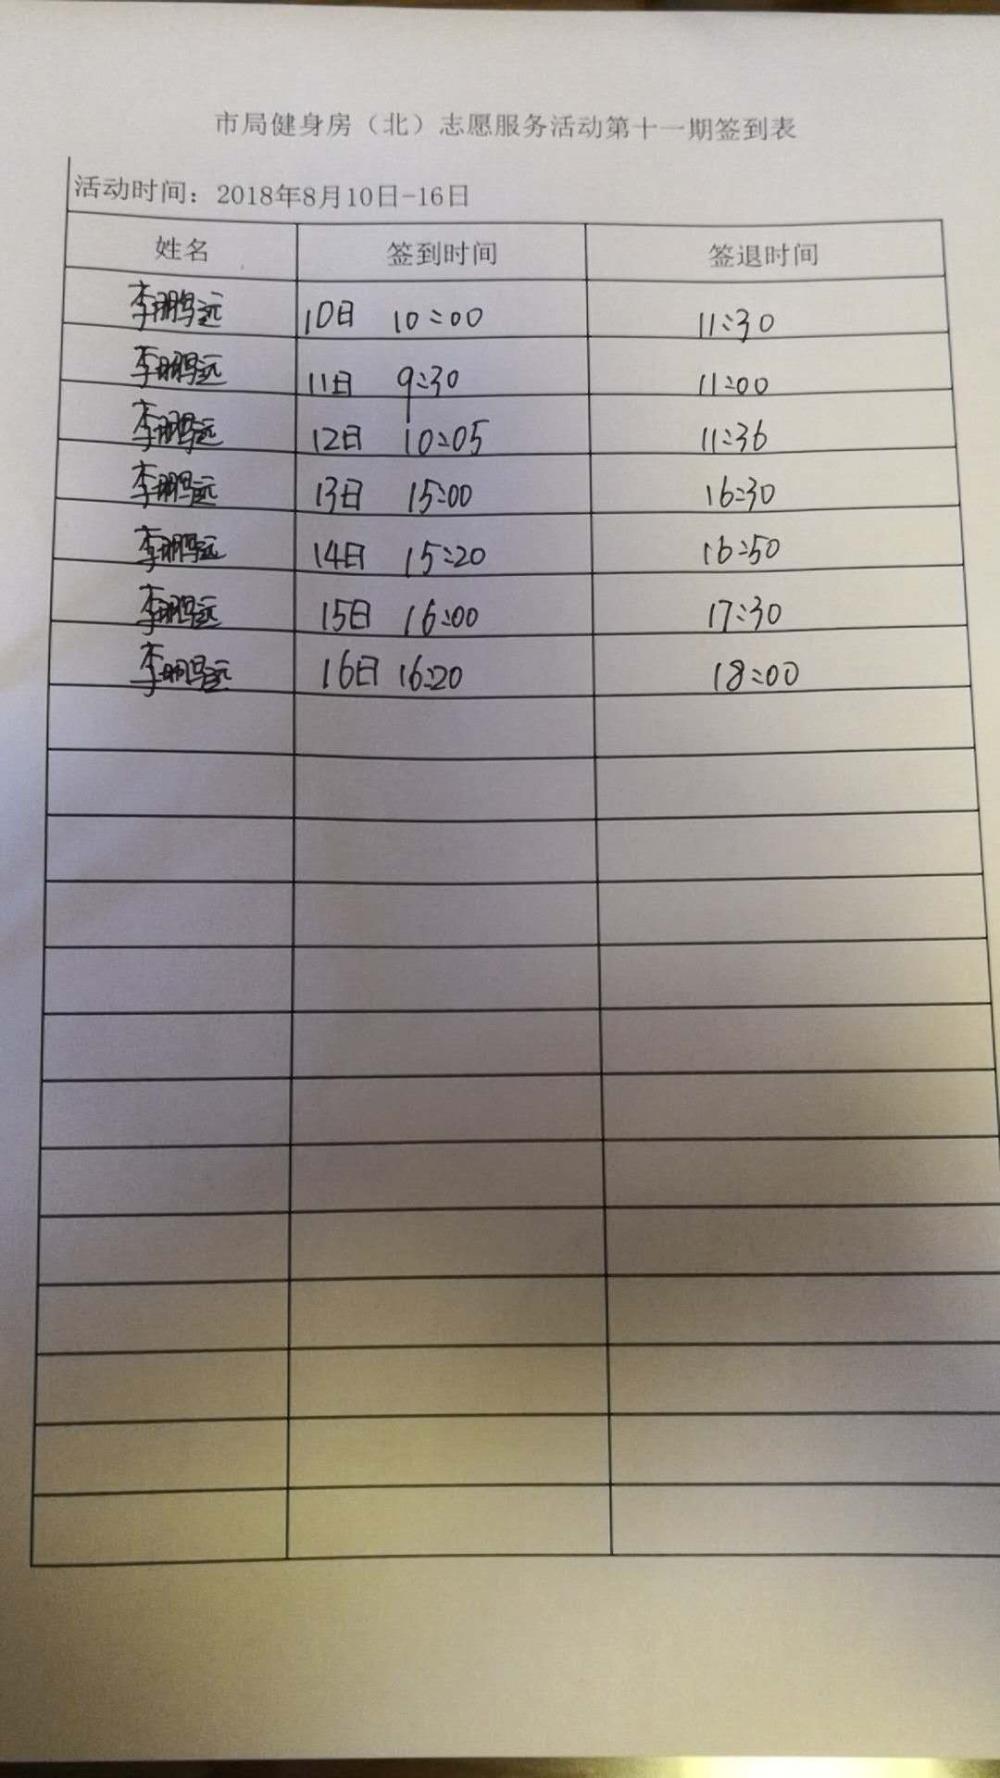 市局健身房（北）志愿服务活动第十一期签到表
活动时间：2018年8月10日-16日
姓名 签到时间 签退时间
李鹏远 10日 10:00 11:30
李鹏远 11日 9:30 11:00
李鹏远 12日 10:05 11:36
李鹏远 13日 15:00 16:30
李鹏远 14日 15:20 16:50
李鹏远 15日 16:00 17:30
李鹏远 16日 16:20 18:00